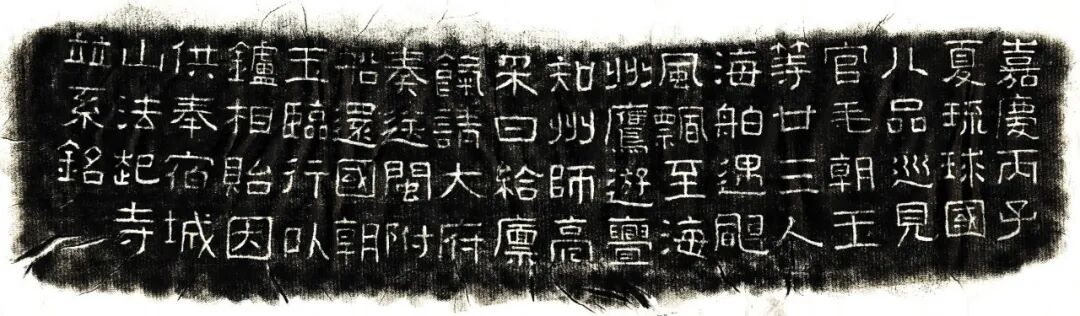 嘉慶丙子
夏琉球國
八品巡見
官毛朝玉
等廿三人
海舶遇颶
風飄至海
州鷹遊亹
知州師亮
采日給廩
餼請大府
奏送閩附
船還國朝
玉臨行以
鑪相貽因
供奉宿城
山法起寺
竝系銘